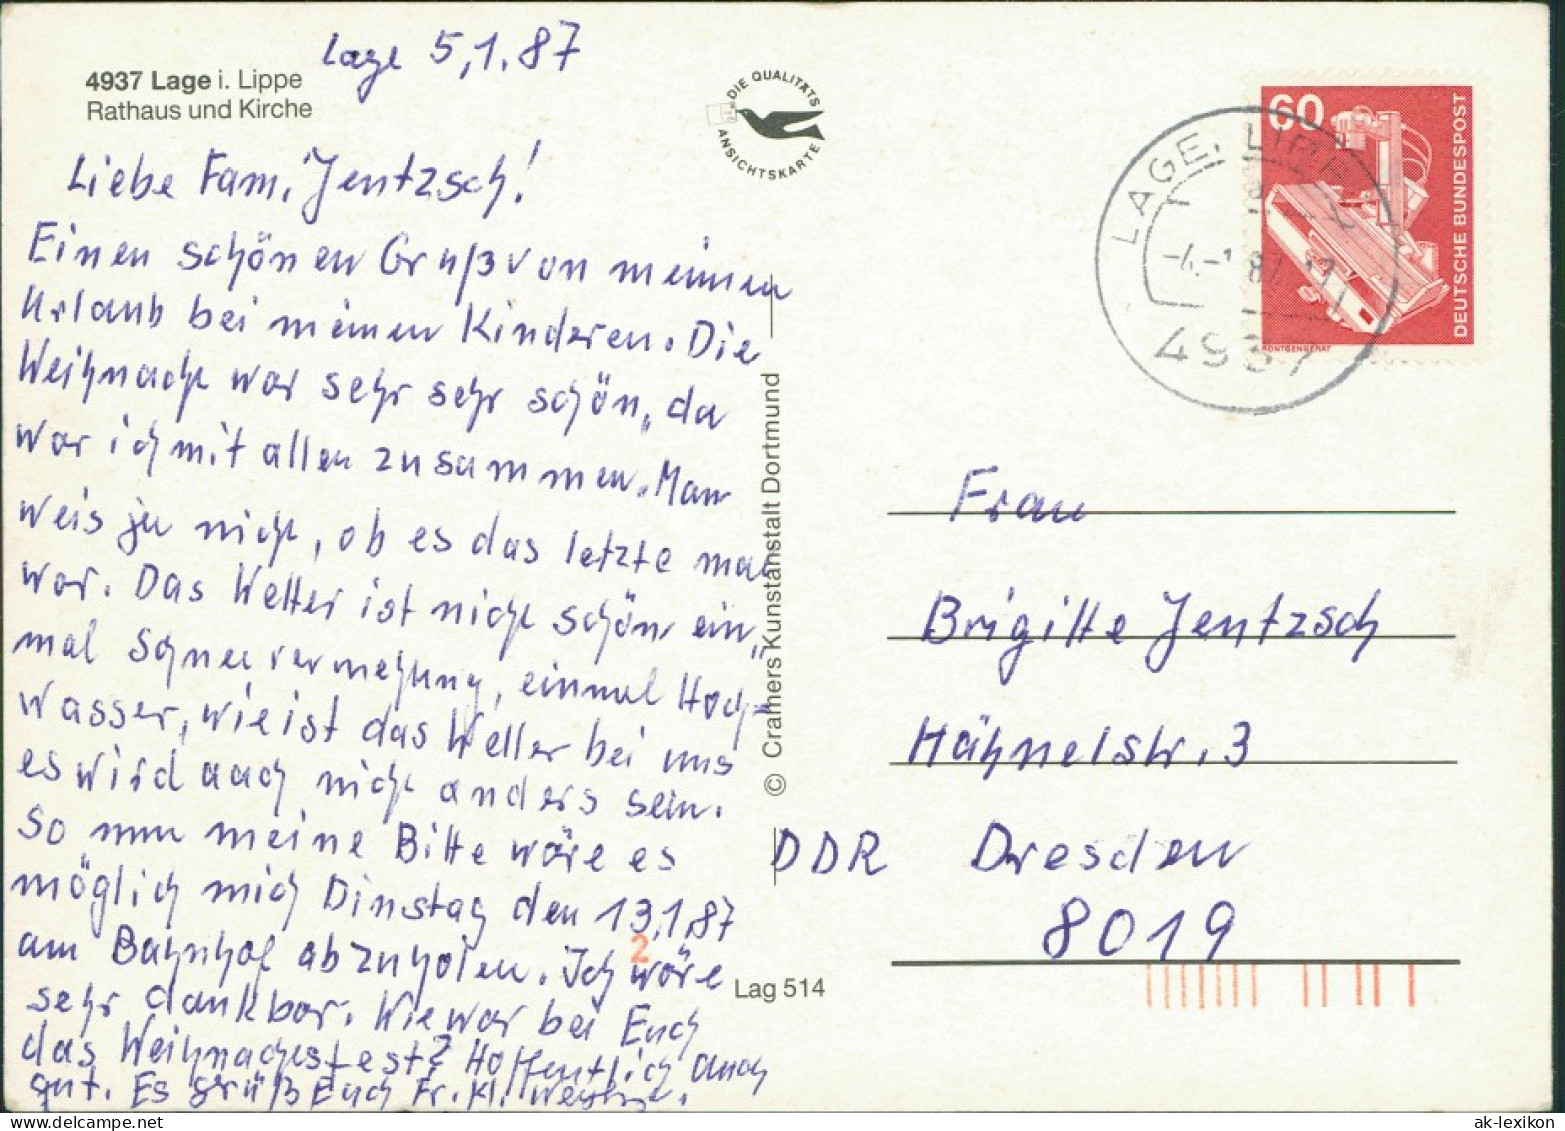 Lage 5,1.87
4937 Lage i. Lippe
Rathaus und Kirche
DIE QUALITÄTS
ANSICHTSKARTE
60
DEUTSCHE BUNDESPOST
RÖNTGENGERÄT
LAGE, LIPPE
-4.-1.87
4937
Liebe Fam. Jentzsch!
Einen schönen Gruß von meinen
Urlaub bei meinen Kindern. Die
Weihnacht war sehr sehr schön, da
war ich mit allen zusammen. Man
weis ja nicht, ob es das letzte mal
war. Das Wetter ist nicht schön ein„
mal Schneevermehung, einmal Hoch„
wasser, wie ist das Wetter bei uns
es wird auch nicht anders sein.
So nun meine Bitte wäre es
möglich mich Dinstag den 13,1,87
am Bahnhof abzuholen. Ich wäre
sehr dankbar. Wie war bei Euch
das Weihnachtsfest? Hoffentlich auch
gut. Es grüßt Euch Fr. Kl.
© Cramers Kunstanstalt Dortmund
Frau
Brigitte Jentzsch
Hähnelstr. 3
DDR Dresden
8019
2
Lag 514
ak-lexikon